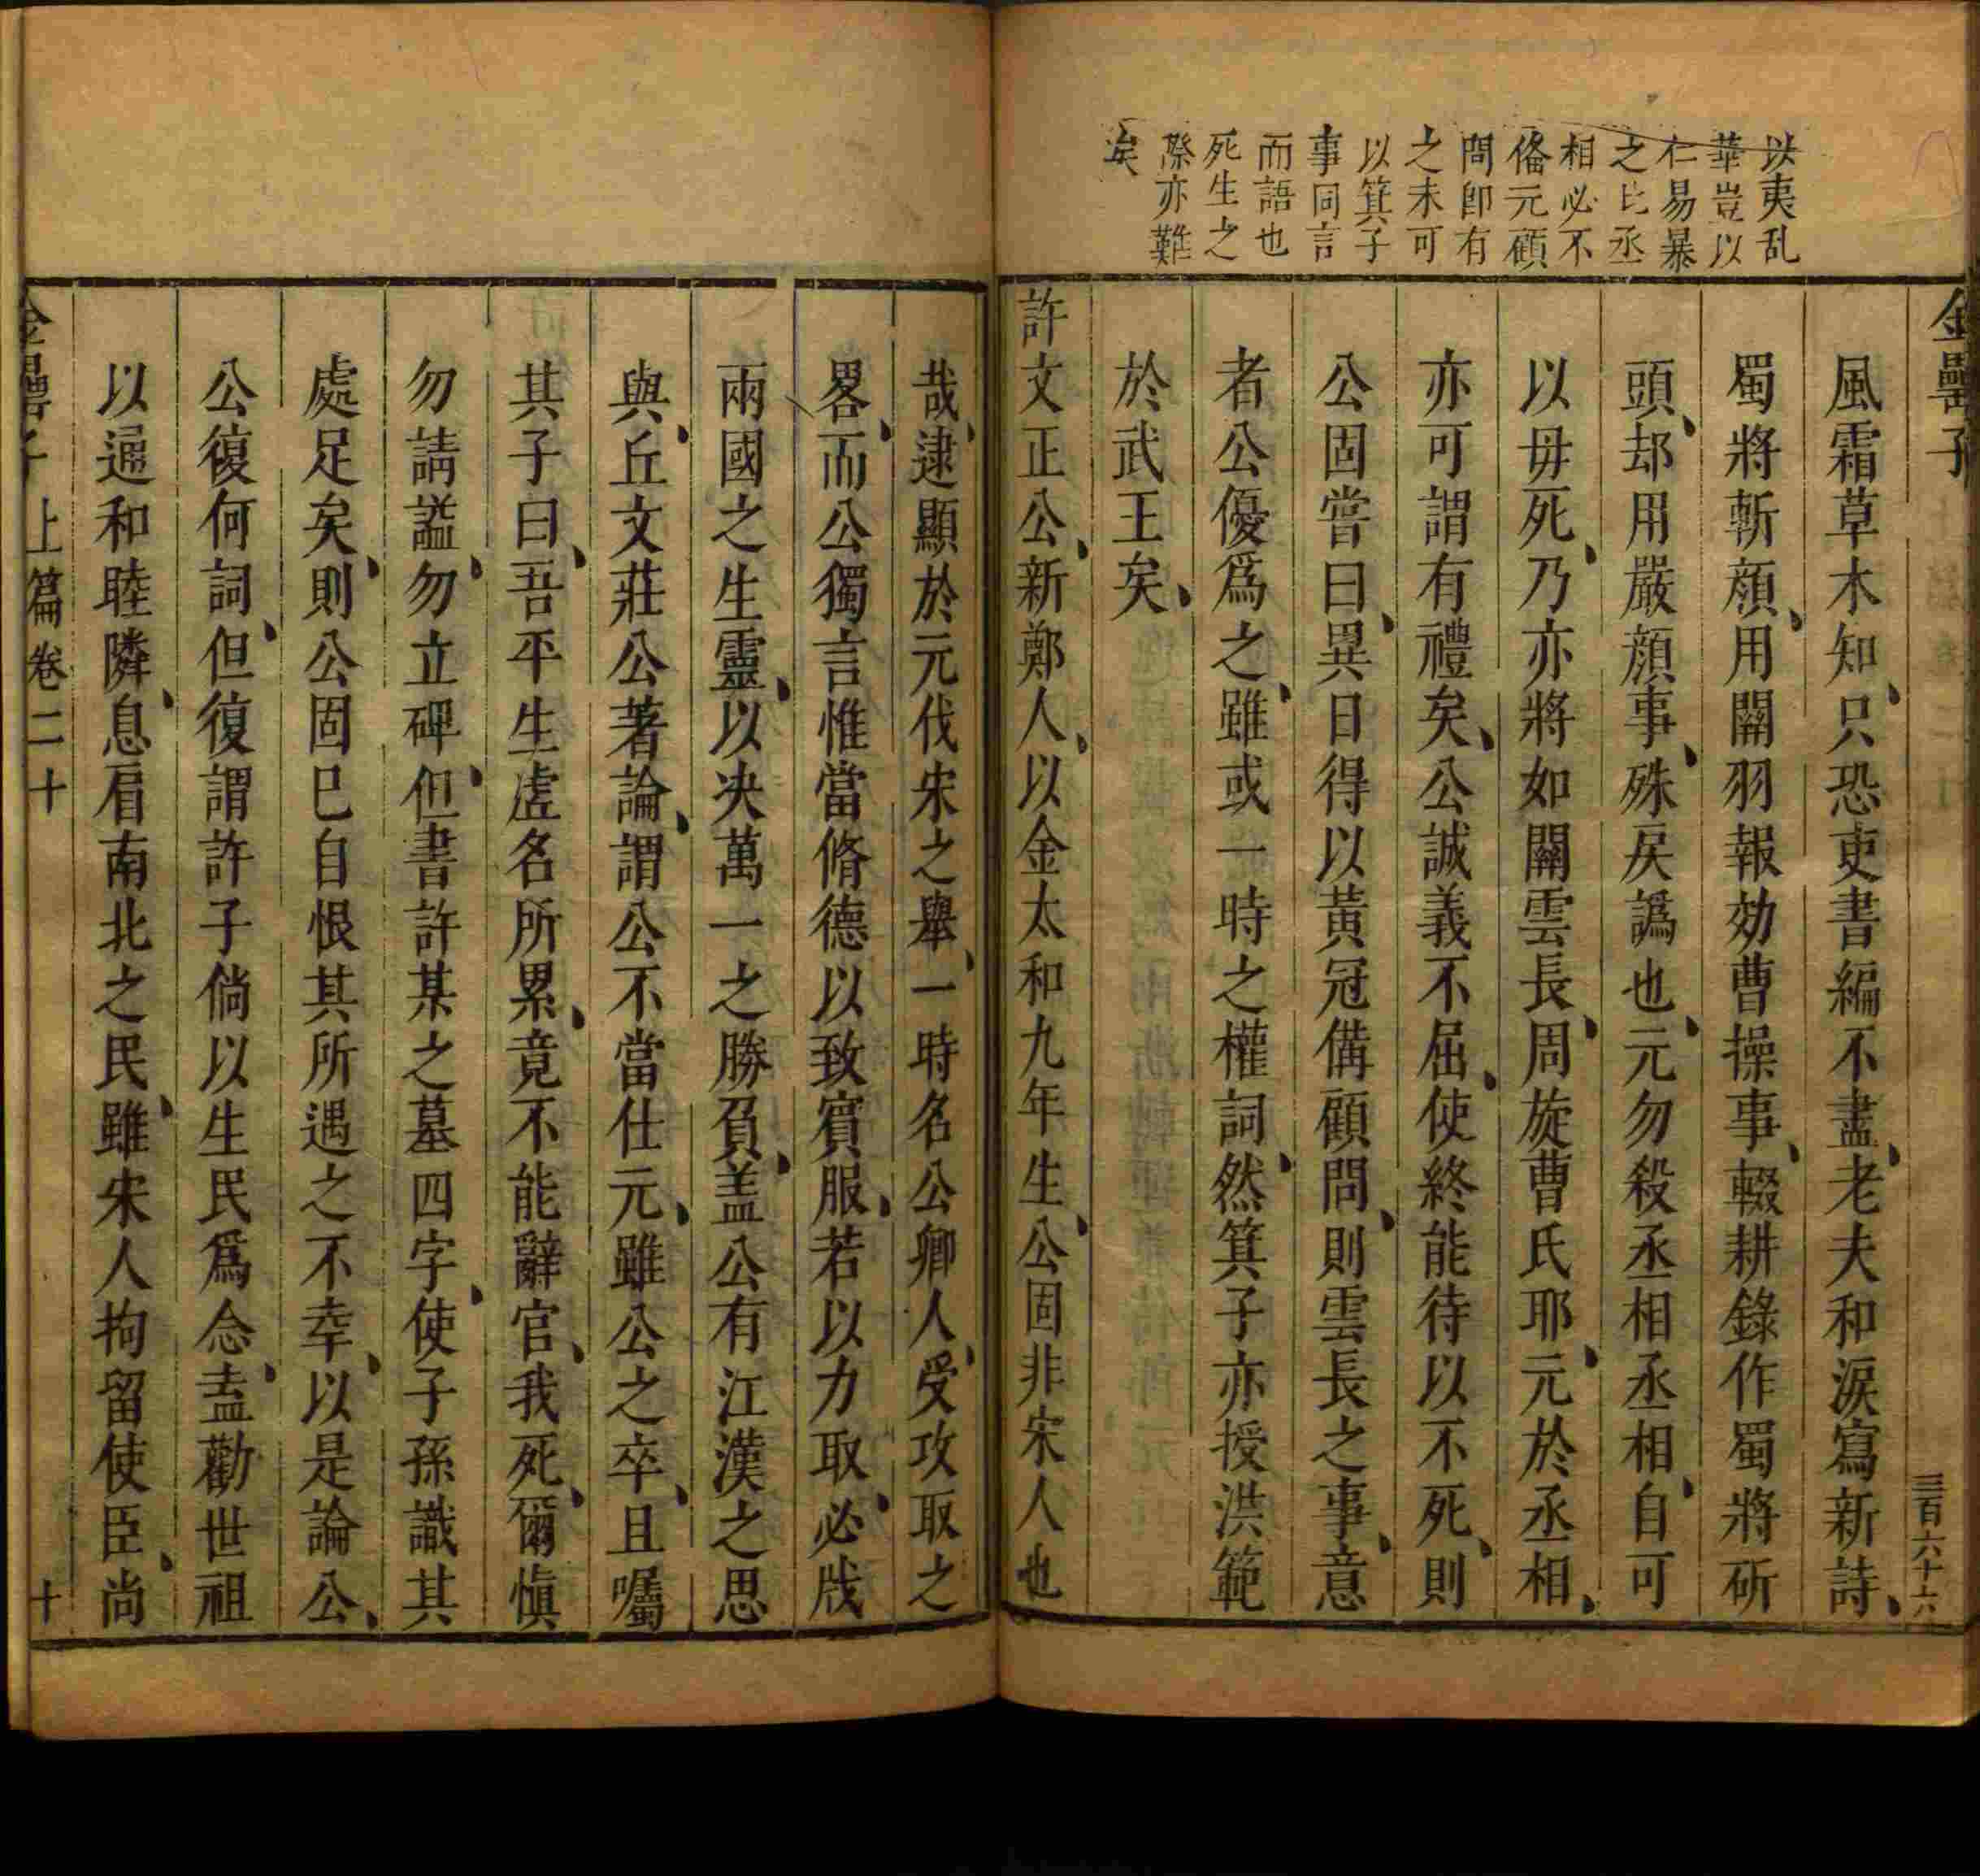 金罍子
三百六十六
以夷乱
華豈以
仁易暴
之比丞
相必不
俻元顧
問即有
之未可
以箕子
事同言
而語也
死生之
際亦難
矣
風霜草木知只恐吏書編不盡老夫和淚寫新詩
蜀將斬顏用關羽報効曹操事輟耕錄作蜀將斫
頭却用嚴顏事殊戾譌也元勿殺丞相丞相自可
以毋死乃亦將如關雲長周旋曹氏耶元於丞相
亦可謂有禮矣公誠義不屈使終能待以不死則
公固嘗曰異日得以黃冠備顧問則雲長之事意
者公優爲之雖或一時之權詞然箕子亦授洪範
於武王矣
許文正公新鄭人以金太和九年生公固非宋人也
哉逮顯於元伐宋之舉一時名公卿人受攻取之
畧而公獨言惟當脩德以致賓服若以力取必戕
兩國之生靈以决萬一之勝負盖公有江漢之思
與丘文莊公著論謂公不當仕元雖公之卒且囑
其子曰吾平生虛名所累竟不能辭官我死爾慎
勿請謚勿立碑但書許某之墓四字使子孫識其
處足矣則公固巳自恨其所遇之不幸以是論公
公復何詞但復謂許子倘以生民爲念盍勸世祖
以通和睦隣息肩南北之民雖宋人拘留使臣尚
金罍子 上篇卷二十
十